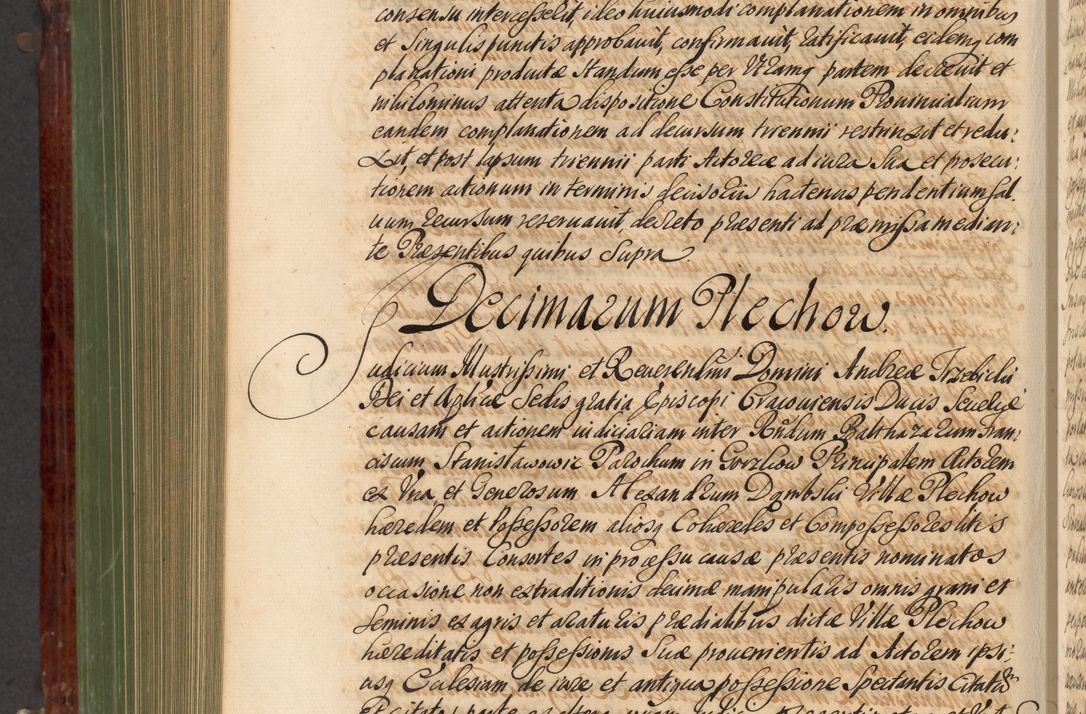 consensu intercesselit, ideo huiusmodi complanationem in omnibus
et singulis punctis approbavit, confirmauit, ratificauit, eidemq com
planationi productæ standum esse per vtramq partem decreuit et
nihilominus attenta dispositione Constitutionum Prouincialium
eandem complanationem ad decursum triennii restrinxit et redu:
xit, et post lapsum triennii parti Actoreæ ad iura sua et prosecu:
tionem actionum in terminis decisoriis hactenus pendentium sal:
uum recursum reseruauit, decreto præsenti ad præmissa median:
te Præsentibus quibus supra
Decimarum Plechow.
Judicium Illustrissimi et Reuerendissimi Domini Andreæ Trzebicki
Dei et Aplicæ Sedis gratia Episcopi Cracouiensis Ducis Seueriæ
causam et actionem iudiciariam inter Rndum Balthazarum Fran:
ciscum Stanisławowic Parochum in Principalem Actorem
ex Vna, et Generosum Alexandrum Dąmbski Villæ Plechow
hæredem et Possessorem aliosq Cohæredes et Compossessores litis
præsentis Consortes in processu causæ præsentis nominatos
occasione non extraditionis decimæ manipularis omnis grani et
seminis ex agris et araturis prædialibus dictæ Villæ Plechow
hæreditatis et possessionis suæ prouenientis ad Actorem ipsi:
usq Ecclesiam de iure et antiqua possessione spectantis